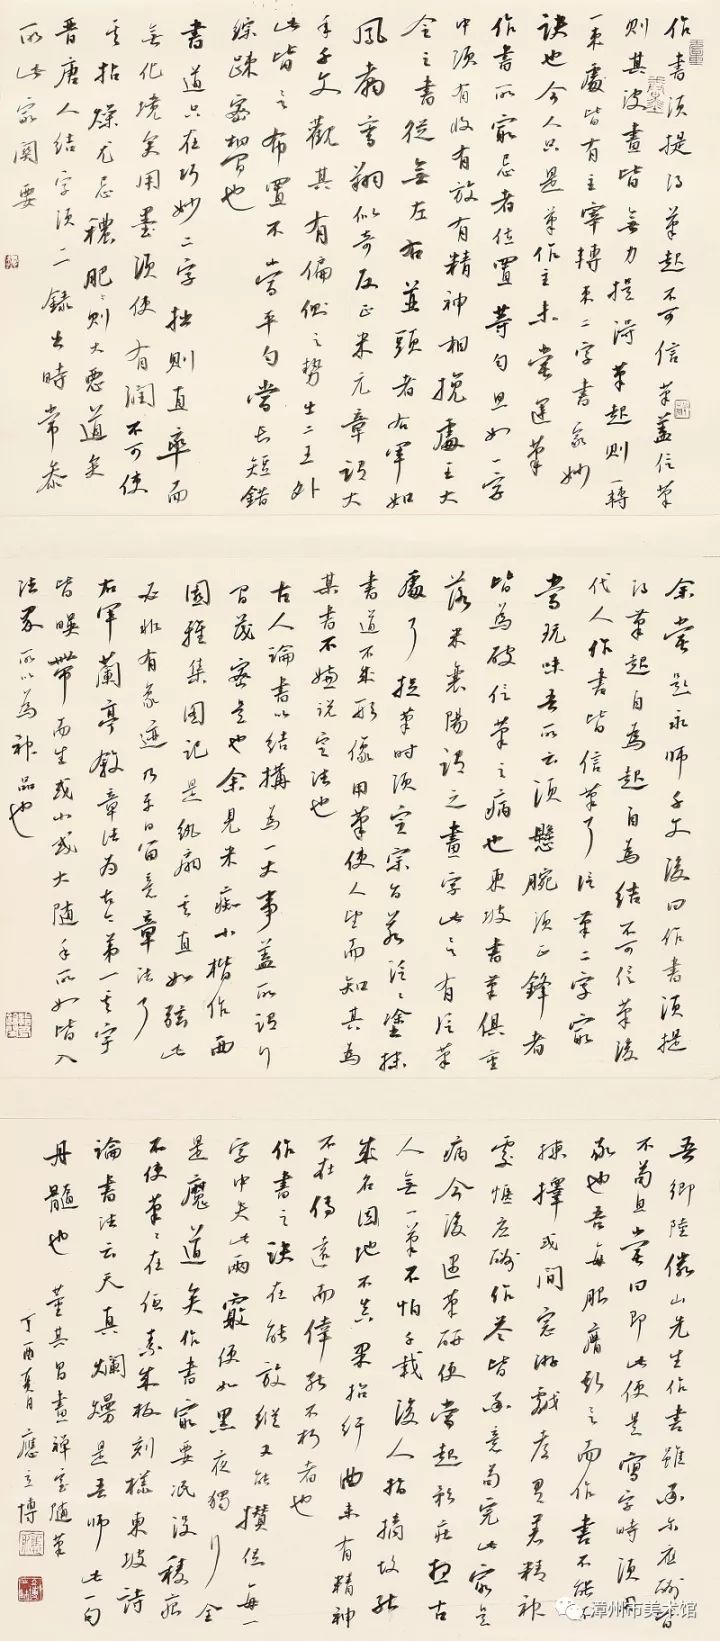 作書須提得筆起不可信筆蓋信筆
則其波畫皆無力提得筆起則一轉
一束處皆有主宰轉束二字書家妙
訣也今人只是筆作主未嘗運筆
作書所最忌者位置等勻且如一字
中須有收有放有精神相挽處王大
令之書從無左右並頭者右軍如
鳳翥鸞翔似奇反正米元章謂大
年千文觀其有偏側之勢出二王外
此皆言布置不當平勻當長短錯
綜踈密相間也
書道只在巧妙二字拙則直率而
無化境矣用墨須使有潤不可使
其枯燥尤忌穠肥肥則大惡道矣
晉唐人結字須一一錄出時常參
取此最關要
余嘗題永師千文後曰作書須提
得筆起自為起自為結不可信筆後
代人作書皆信筆耳信筆二字最
當玩味吾所云須懸腕須正鋒者
皆為破信筆之病也東坡書筆俱重
落米襄陽謂之畫字此言有信筆
處耳捉筆時須定宗旨若泛泛塗抹
書道不成形像用筆使人望而知其為
某書不嫌說定法也
古人論書以結構為一大事蓋所謂行
間茂密是也余見米痴小楷作西
園雅集圖記是紈扇其直如弦此
必非有迹乃平日留意章法耳
右軍蘭亭敘章法為古今第一其字
皆映帶而生或小或大隨手所如皆入
法界所以為神品也
吾鄉陸儼山先生作書雖率爾應酬皆
不苟且嘗曰即此便是寫字時須用
敬也吾每服膺斯言而作書不能不
揀擇或閒窗游戲都有着精神
處惟應酬作答皆率意苟完此最是
病今後遇筆研便當起矜莊想古
人無一筆不怕千載後人指摘故能
成名因地不真果招紆曲未有精神
不在傳遠而倖能不朽者也
作書之訣在能放縱又能攢捉每一
字中失此兩竅便如黑夜獨行全
是魔道矣作書最要泯沒稜痕
不使筆筆在紙素成板刻樣東坡詩
論書法云天真爛熳是吾師此一句
丹髓也 董其昌畫禪室隨筆
丁酉夏月 應立博
漳州市美术馆